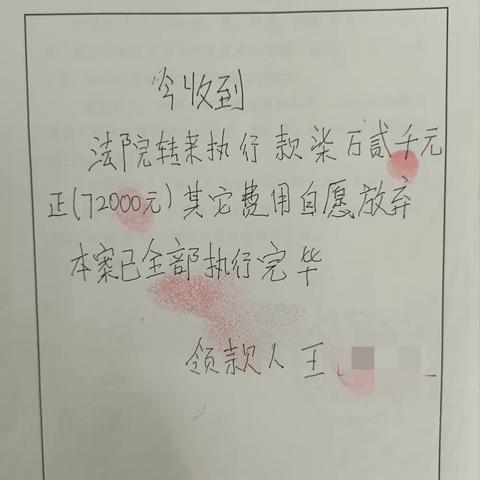 今收到
法院转来执行款柒万贰千元
正(72000元)其它费用自愿放弃
本案已全部执行完毕
领款人王